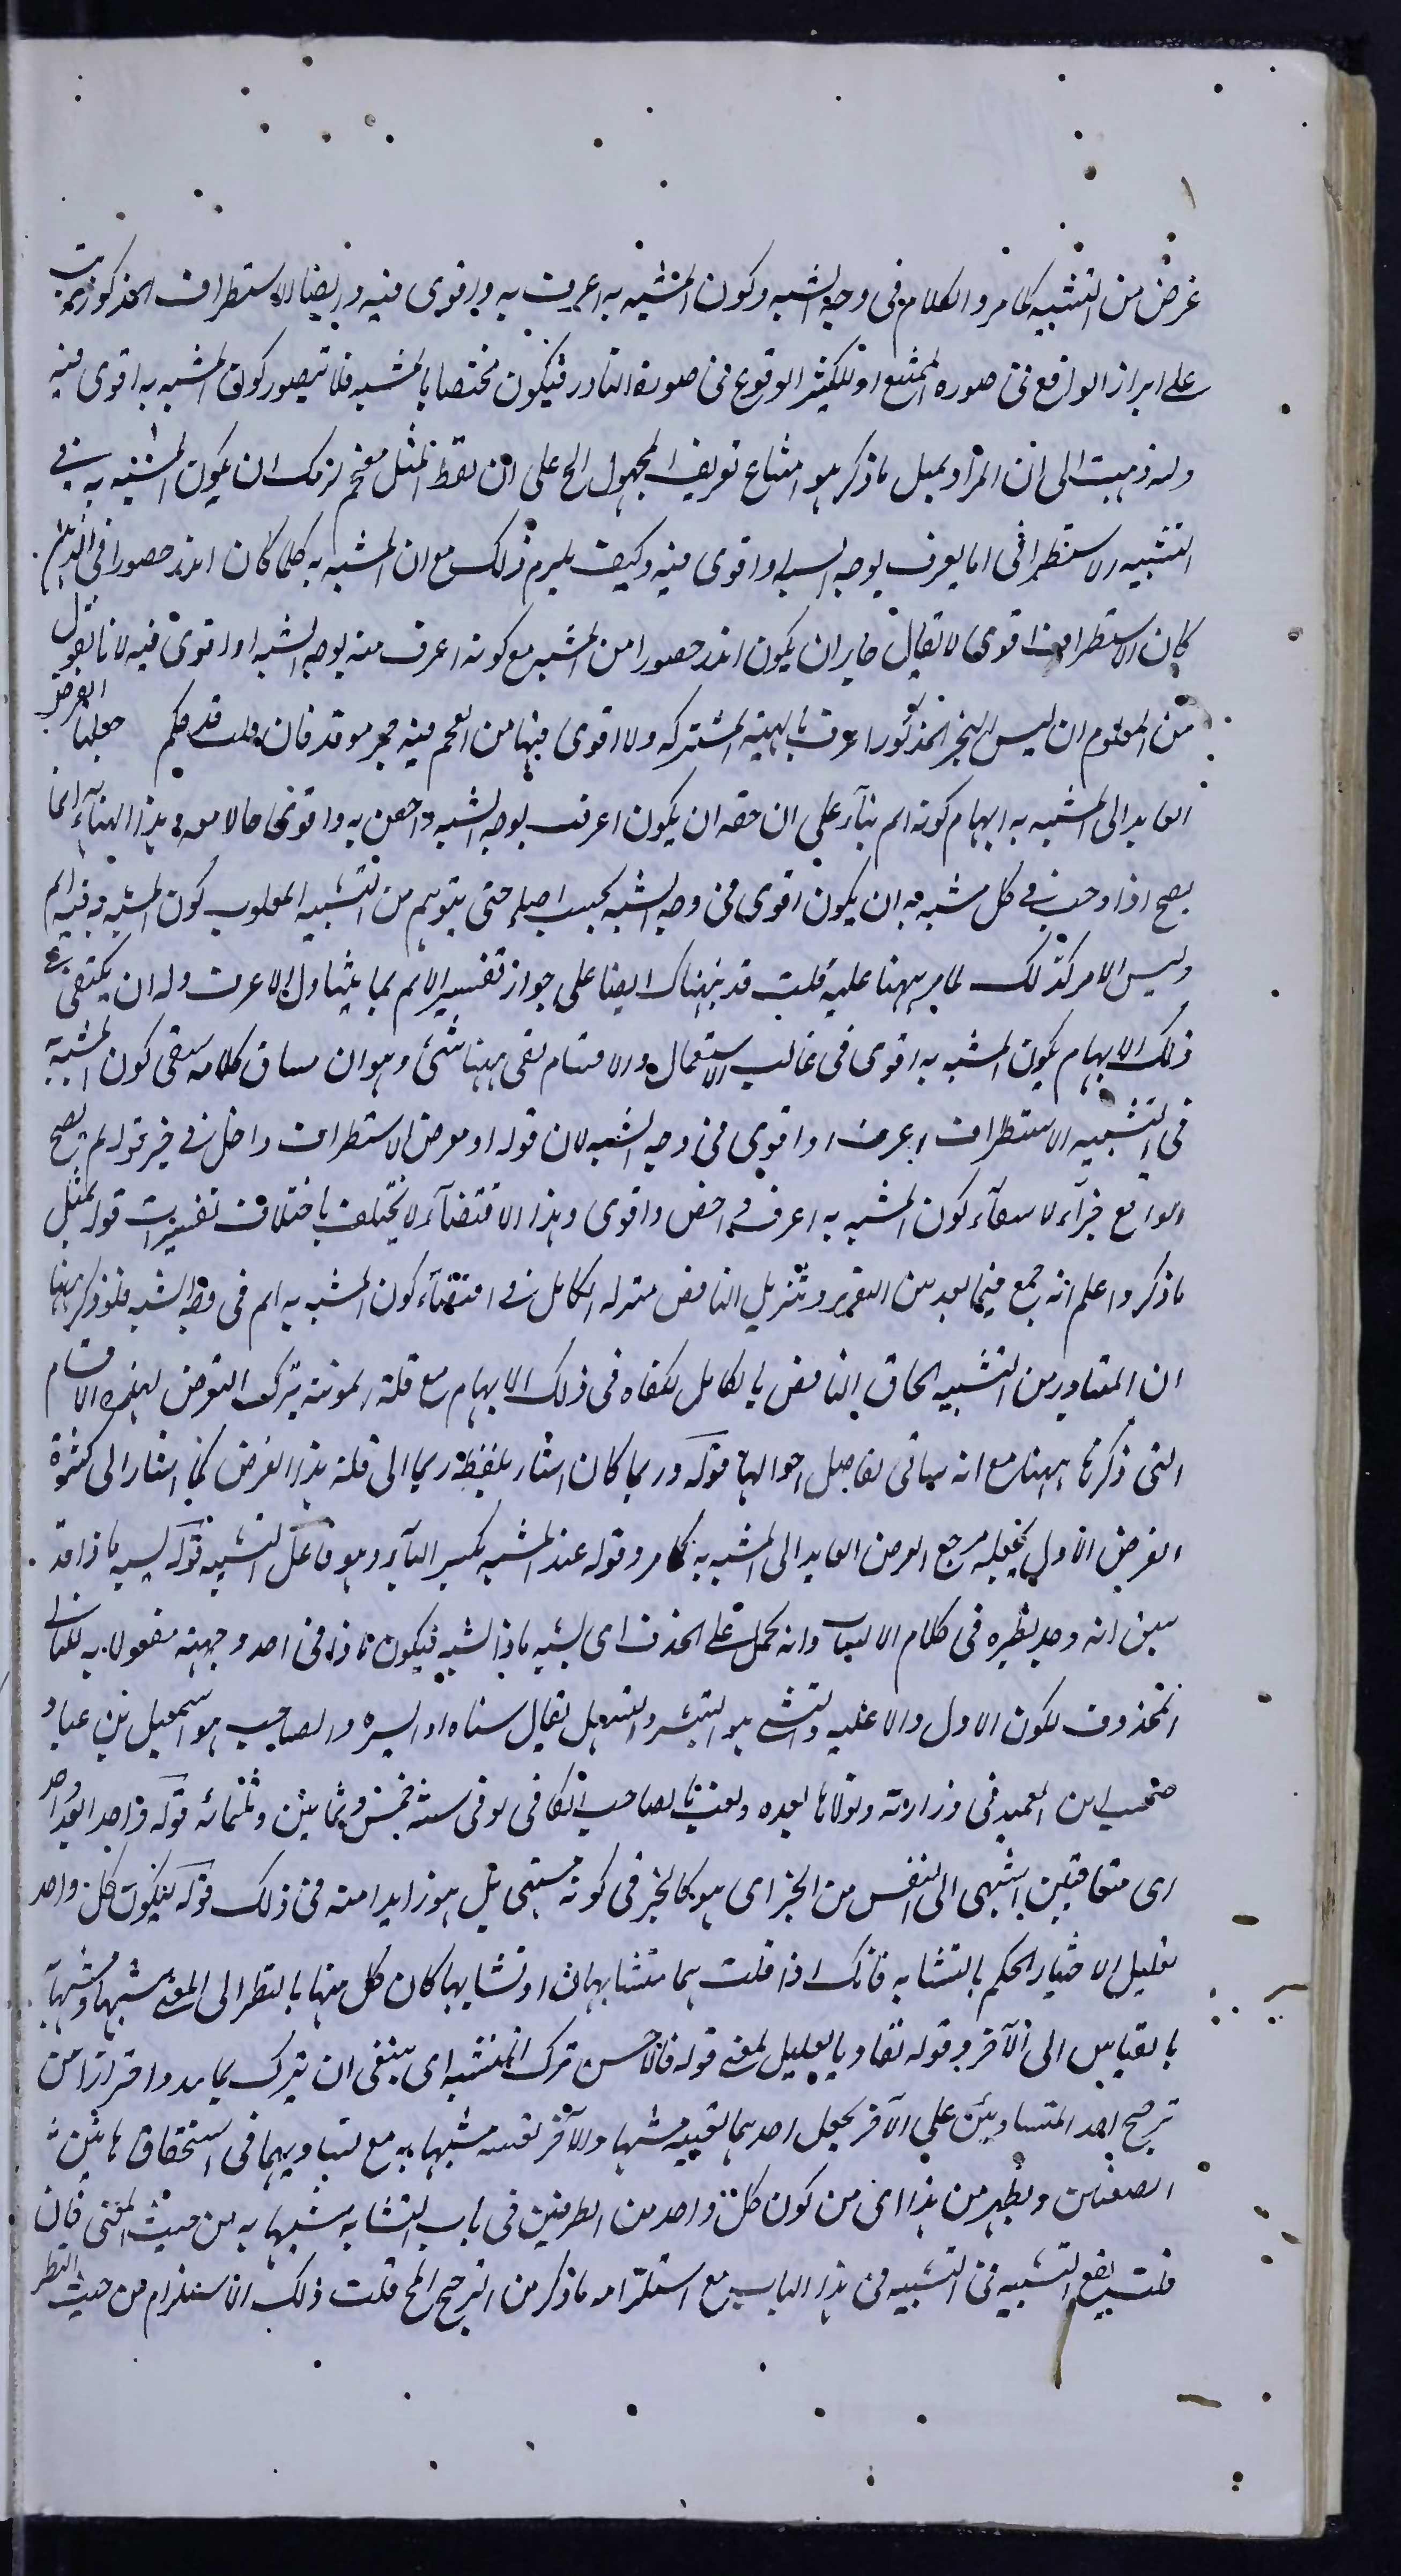 غرض من التشبيه كما مر والكلام فى وجه الشبه وكون المشبه به اعرف به واقوى فيه وايضا الاستطراف المذكور يترتب
على ابراز الواقع فى صورة الممتنع او للكثير الوقوع فى صورة النادر فيكون مختصا بالمشبه فلا يتصور كون المشبه به اقوى فيه
ولو ذهبت الى ان المراد بمثل ما ذكر هو امتناع تعريف المجهول الخ على ان لفظ المثل مقحم لزمك ان يكون المشبه به فى
التشبيه الاستطرافى اما يعرف بوجه الشبه او اقوى فيه وكيف يلزم ذلك مع ان المشبه به كلما كان اندر حضورا فى الذهن
كان الاستطراف اقوى لا يقال جاز ان يكون اندر حضورا من المشبه مع كونه اعرف منه بوجه الشبه او اقوى فيه لانا نقول
من المعلوم ان ليس البحر المذكور اعرف بالهيئة المشتركة ولا اقوى فيها من الفحم فيه جمر موقد فان قلت قد حكم جعلها الغرض
العايد الى المشبه به ايهام كونه اتم بناء على ان حقه ان يكون اعرف بوجه الشبه واخص به واقوى حالا معه وهذا البناء انما
يصح اذا وجب فى كل مشبه به ان يكون اقوى فى وجه الشبه بحسب اصله حتى يتوهم من التشبيه المقلوب كون المشبه به فيه اتم
وليس الامر كذلك لما مر ههنا عليه قلت قد نبهناك ايضا على جواز تفسير الاتم بما يتناول الاعرف وله ان يكتفى فى
ذلك الايهام بكون المشبه به اقوى فى غالب الاستعمال والاقسام بقى ههنا شئ وهو ان مساق كلامه يقتضى كون المشبه به
فى التشبيه الاستطراف اعرف او اقوى فى وجه الشبه لان قوله او معرض الاستطراف داخل فى حيز قوله لم يصح
الواقع جزاء لانتفاء كون المشبه به اعرف او اخص واقوى وهذا الاقتضاء لا يختلف باختلاف تفسيرات قوله بمثل
ما ذكر واعلم انه جمع فيما بعد بين التقرير وتنزيل الناقص منزلة الكامل فى اقتضاء كون المشبه به اتم فى وجه الشبه فلو ذكر ههنا
ان المتبادر من التشبيه الحاق الناقص بالكامل لكفاه فى ذلك الايهام مع قلة المونة بترك التعرض لهذه الاقسام
التى ذكرها ههنا مع انه سياتى تفاصيل احوالها قوله وربما كان اشار بلفظة ربما الى قلة هذا الغرض كما اشار الى كثرة
الغرض الاول بجعله مرجع الغرض العايد الى المشبه به كما مر وقوله عند المشبه بكسر الباء وهو فاعل التشبيه قوله يسبه ماذا قد
سبق انه وجد نظيره فى كلام الالباب وانه يحمل على الحذف اى يشبه ماذا الشبه فيكون ماذا فى احد وجهيه مفعولا به للثانى
المحذوف لكون الاول والاغلب والتشبه هو التيسر والتسهل يقال سناه او ايسره والصاحب هو اسمعيل بن عباد
صحب ابن العميد فى وزارته وتولاها بعده ولقب بالصاحب الكافى توفى سنة خمس وثمانين وثلثمائه قوله واحد بعد واحد
اى متعاقبين اشهى الى النفس من الخبز اى هو كالخبز فى كونه مشتهى بل هو زايد منه فى ذلك قوله ليكون كل واحد
تعليل لاختيار الحكم بالتشابه فانك اذا قلت هما متشابهان او تشابها كان كل منهما بالنظر الى المعنى مشبها ومشبها به
بالقياس الى الآخر وقوله تفاديا تعليل لمعنى قوله فالاحسن ترك التشبيه اى ينبغى ان يترك احترازا من
ترجيح احد المتساويين على الآخر بجعل احدهما بعينه مشبها والآخر بعينه مشبها به مع تساويهما فى استحقاق هاتين
الصفتين ويظهر من هذا اى من كون كل واحد من الطرفين فى باب التشابه مشبها به من حيث المعنى فان
قلت يقع التشبيه فى التشبيه فى هذا الباب مع استلزامه ما ذكر من الترجيح الخ قلت ذلك الاستلزام من حيث النظر